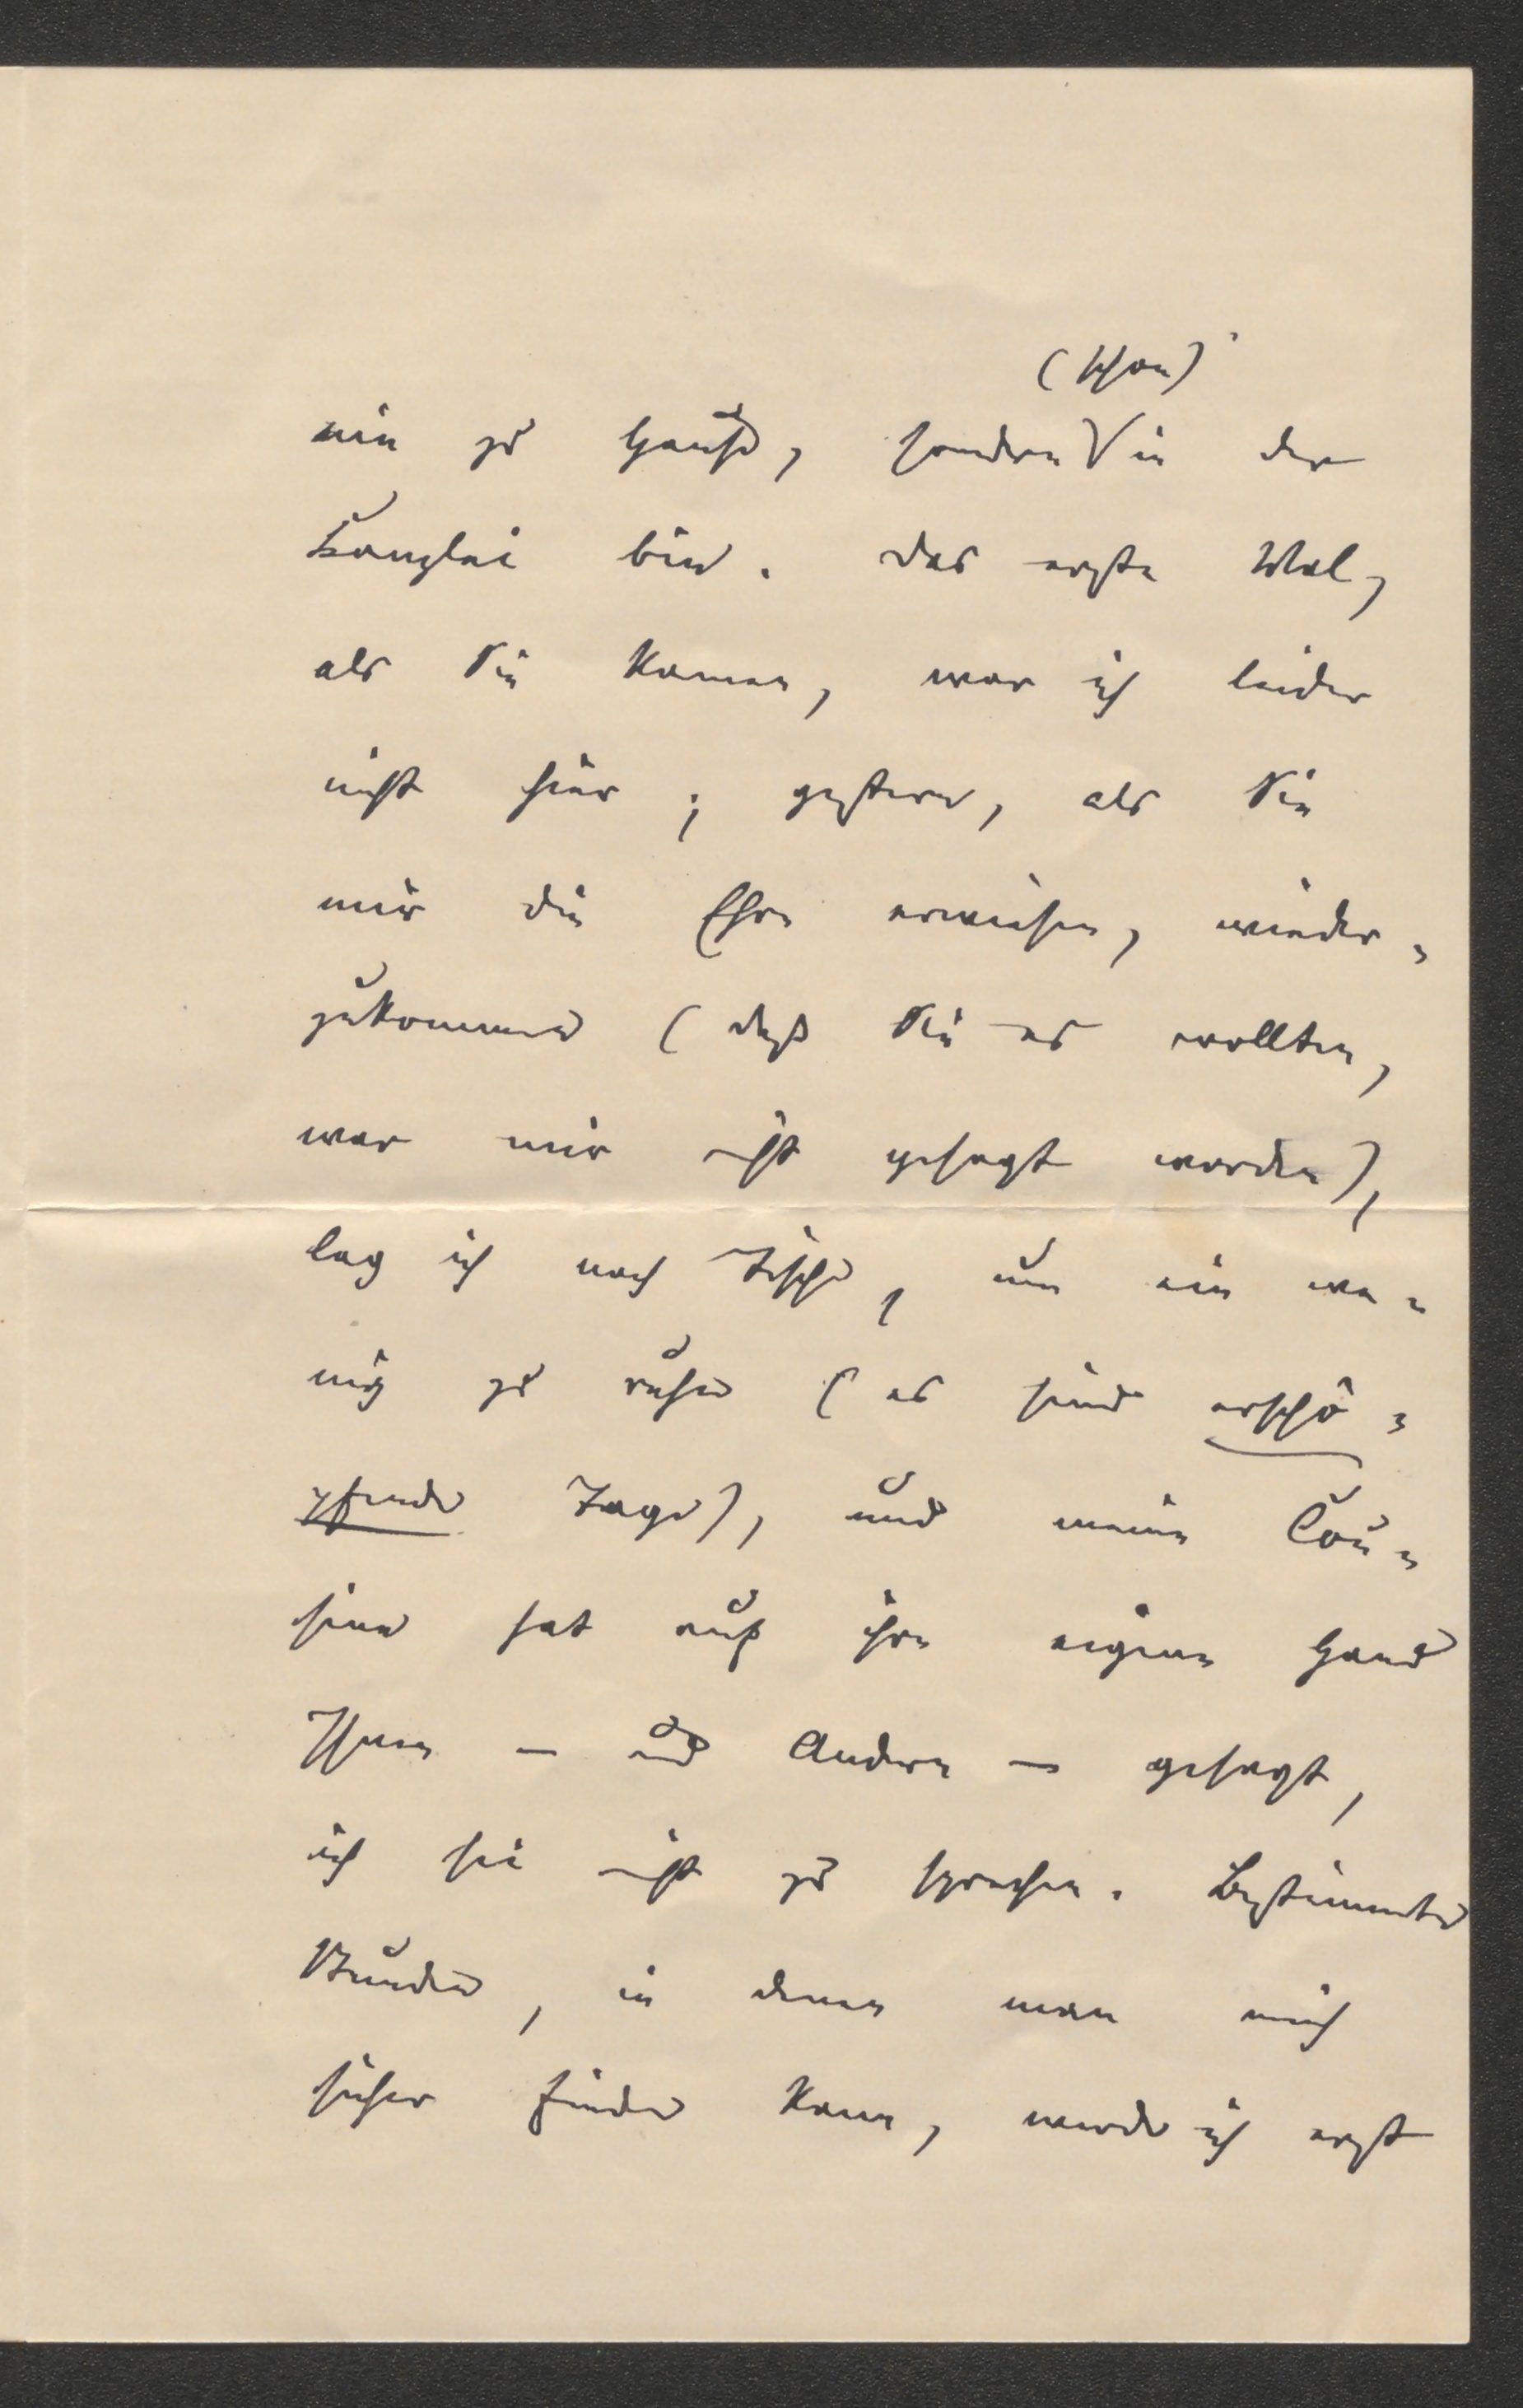 (schon)
nie zu Hause, sondern in der
Kanzlei bin. Das erste Mal,
als Sie kamen, war ich leider
nicht hier; gestern, als Sie
mir die Ehre erwiesen, wieder-
zukommen (daß Sie es wollten,
war mir nicht gesagt worden),
lag ich nach Tische, um ein we-
nig zu ruhen (es sind erschö-
pfende Tage), und meine Cou-
sine hat auf ihre eigene Hand
Ihnen – und Andern – gesagt,
ich sei nicht zu sprechen. Bestimmte
Stunden, in denen man mich
sicher finden kann, werde ich erst